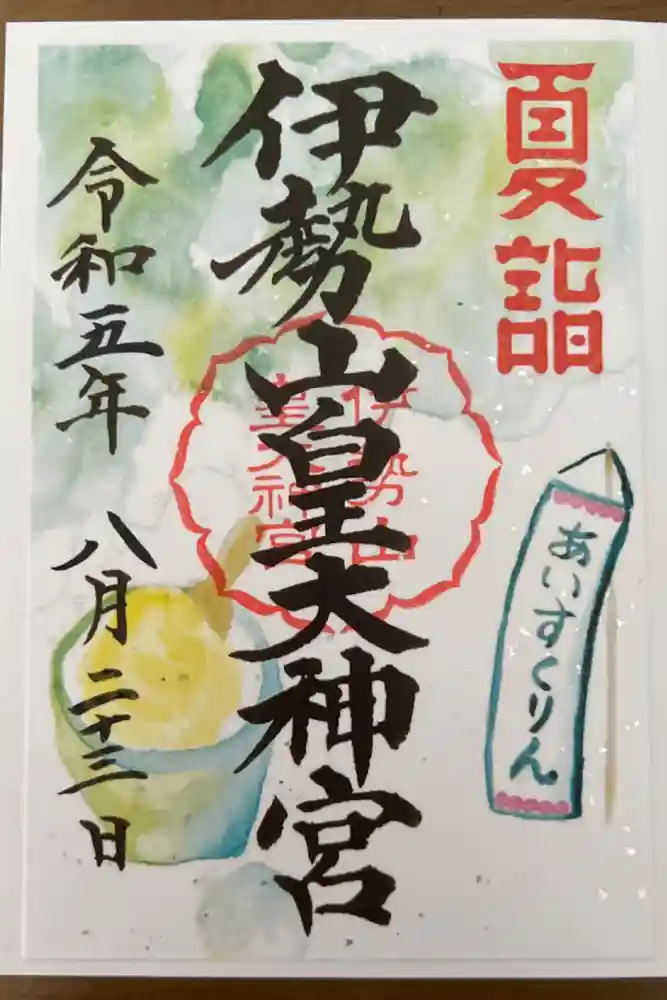 夏詣
伊勢山皇大神宮
伊勢山
皇大神宮
あいすくりん
令和五年
八月二十三日